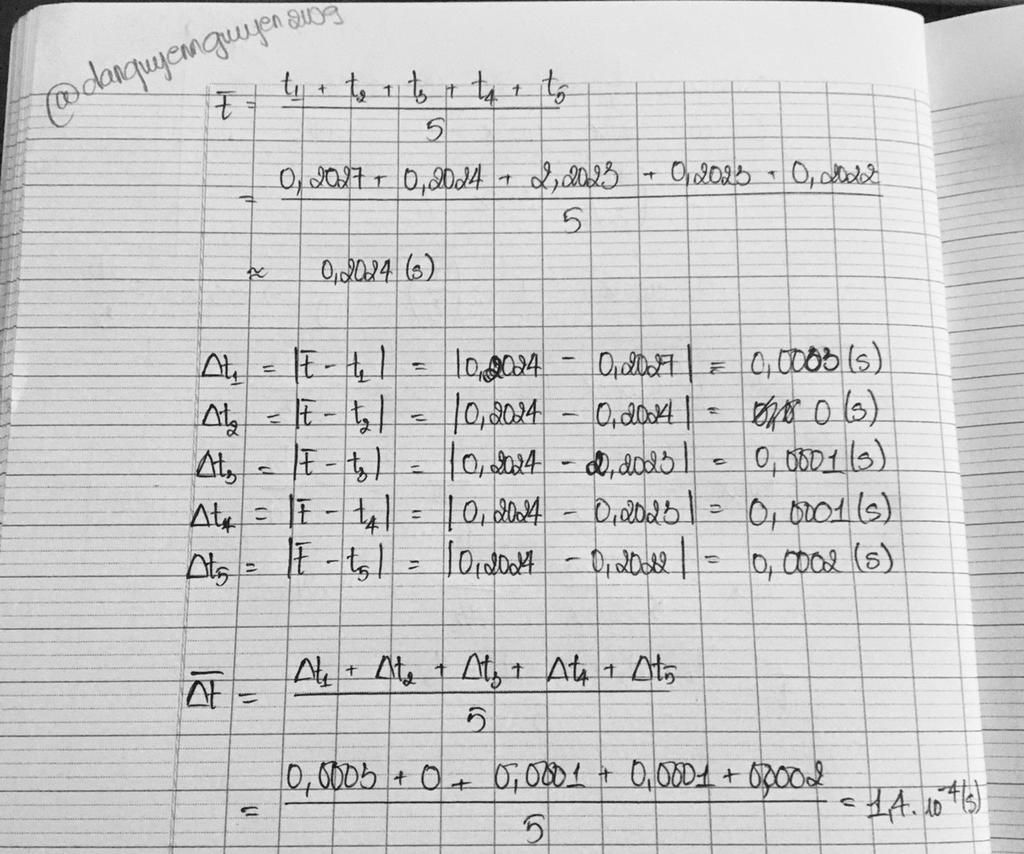 @danquyennguyen2009
t̄ = (t₁ + t₂ + t₃ + t₄ + t₅) / 5
= (0,2027 + 0,2024 + 2,2023 + 0,2023 + 0,2022) / 5
≈ 0,2024 (s)
Δt₁ = |t̄ - t₁| = |0,2024 - 0,2027| = 0,0003 (s)
Δt₂ = |t̄ - t₂| = |0,2024 - 0,2024| = 0 (s)
Δt₃ = |t̄ - t₃| = |0,2024 - 0,2023| = 0,0001 (s)
Δt₄ = |t̄ - t₄| = |0,2024 - 0,2023| = 0,0001 (s)
Δt₅ = |t̄ - t₅| = |0,2024 - 0,2022| = 0,0002 (s)
Δt̄ = (Δt₁ + Δt₂ + Δt₃ + Δt₄ + Δt₅) / 5
= (0,0003 + 0 + 0,0001 + 0,0001 + 0,0002) / 5 = 1,4. 10⁻⁴ (s)